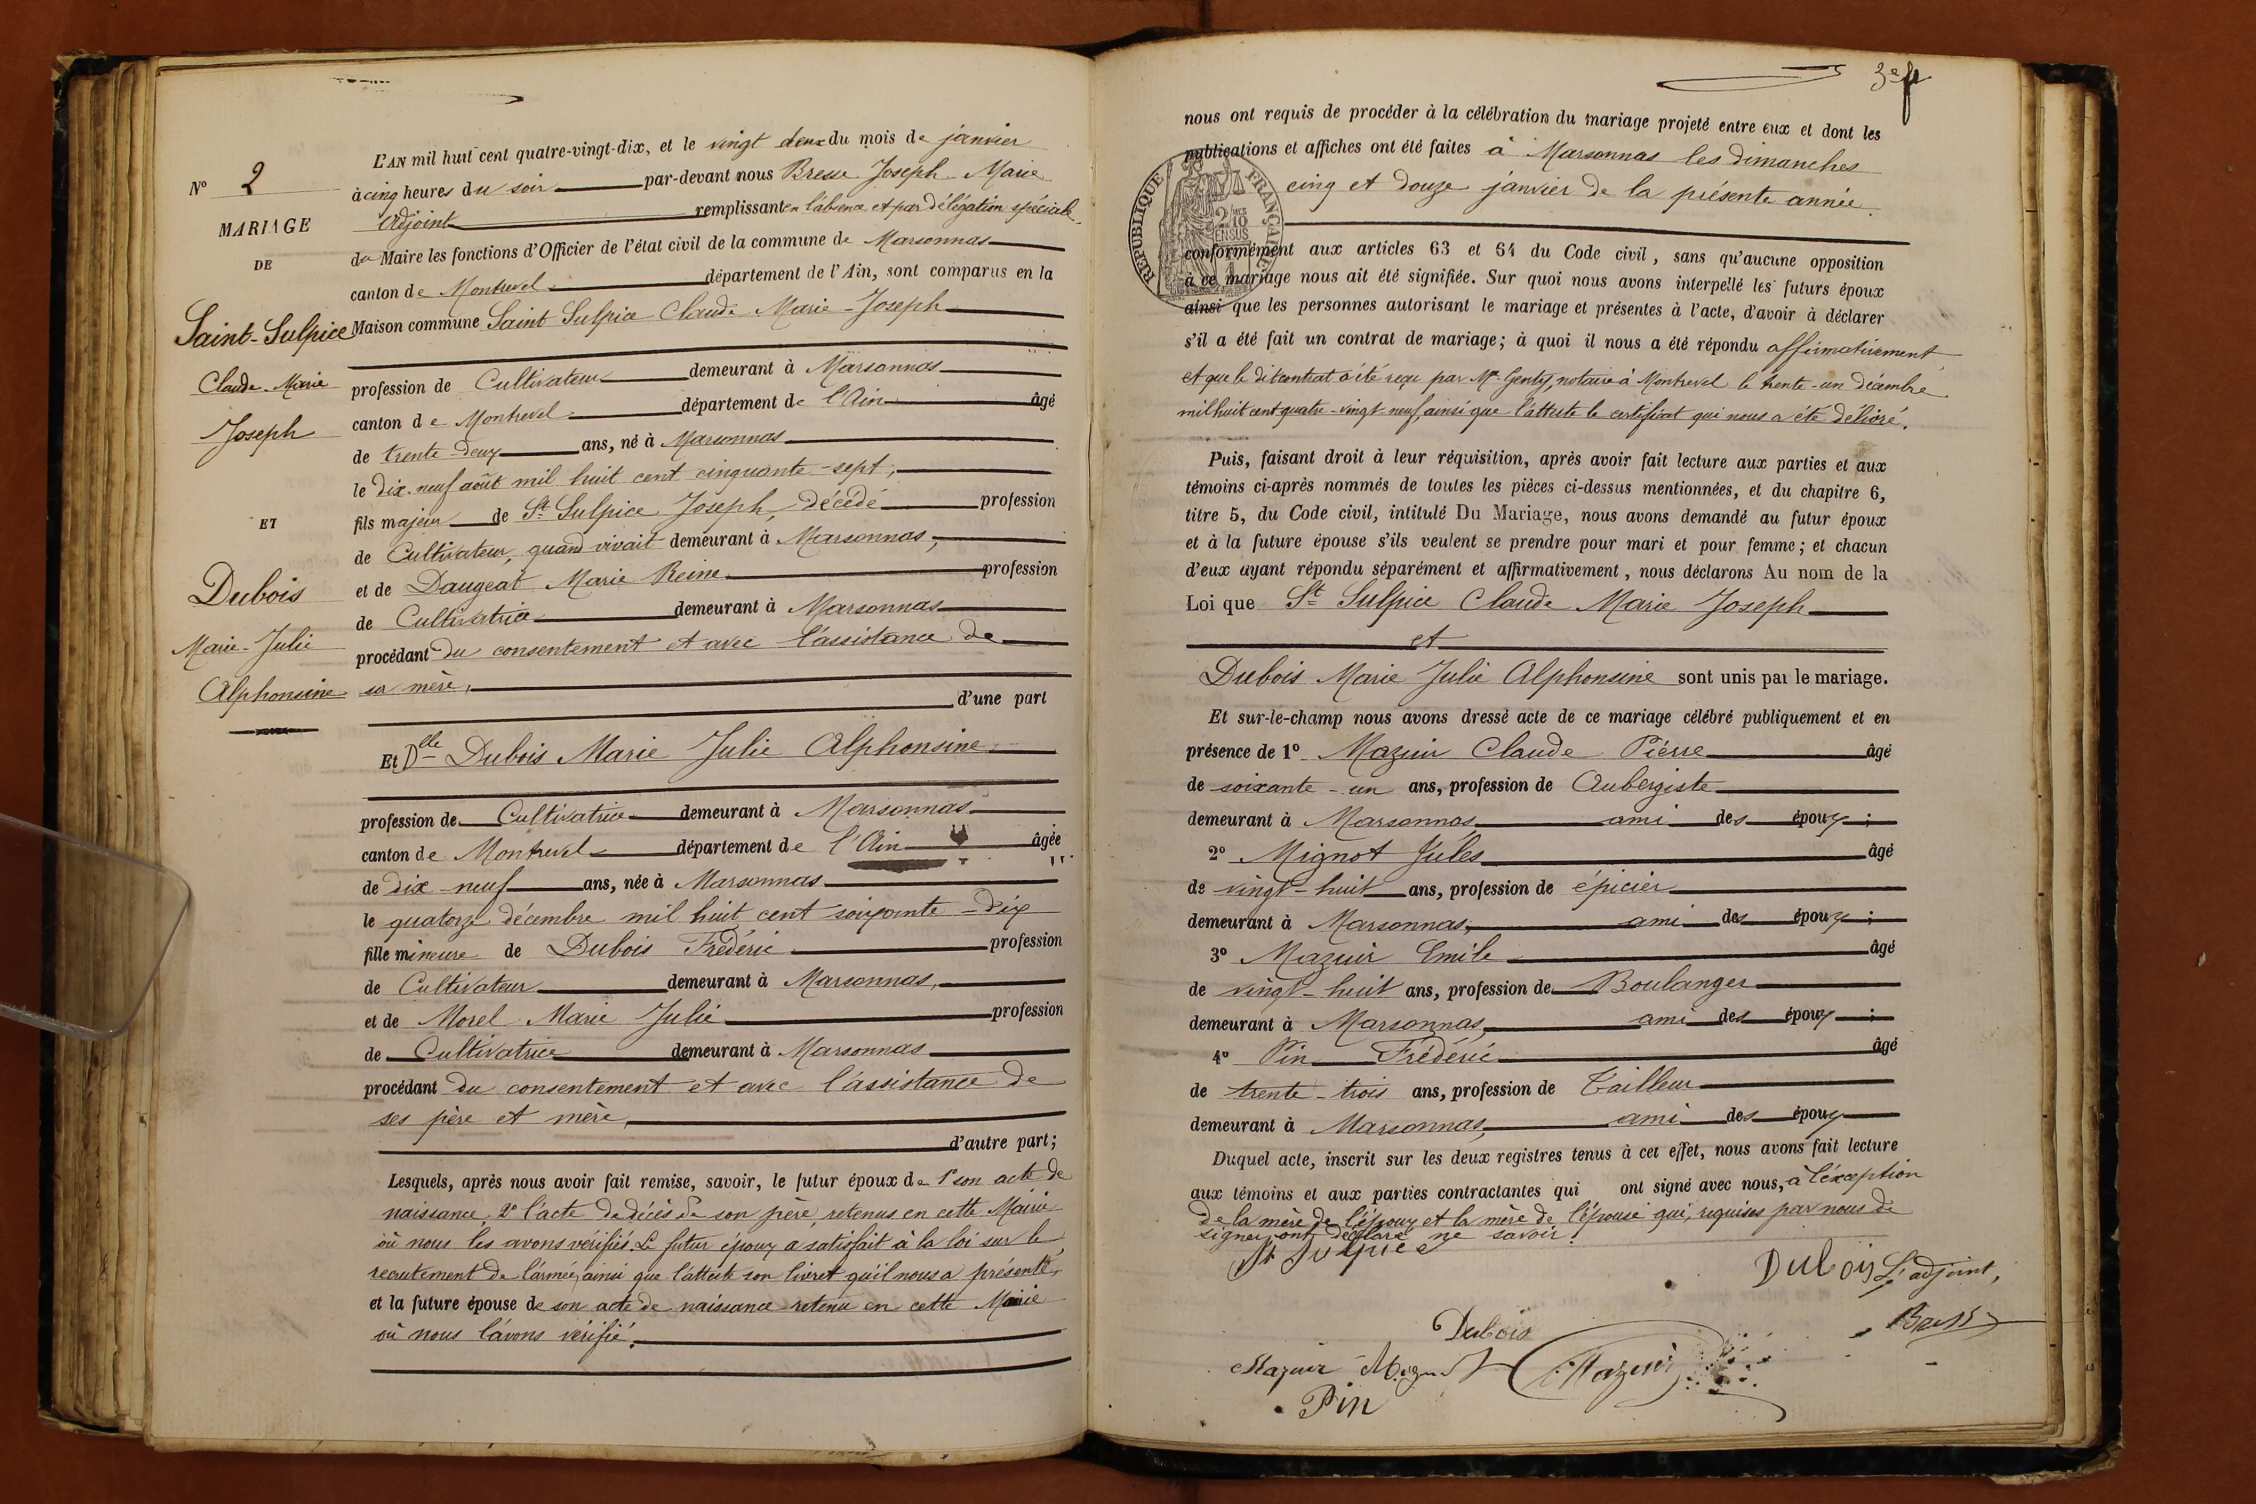 N° 2
MARIAGE
DE
Saint-Sulpice
Claude-Marie
Joseph
ET
Dubois
Marie-Julie
Alphonsine
L'AN mil huit cent quatre-vingt-dix, et le vingt deux du mois de janvier
à cinq heures du soir par-devant nous Bresse Joseph-Marie
Adjoint remplissant en l'absence et par délégation spéciale
du Maire les fonctions d'Officier de l'état civil de la commune de Marsonnas
canton de Montrevel département de l'Ain, sont comparus en la
Maison commune Saint Sulpice Claude Marie-Joseph
profession de Cultivateur demeurant à Marsonnas
canton de Montrevel département de l'Ain âgé
de trente-deux ans, né à Marsonnas
le dix-neuf août mil huit cent cinquante-sept,
fils majeur de St Sulpice Joseph, décédé profession
de Cultivateur, quand vivait demeurant à Marsonnas,
et de Daugeat Marie Reine profession
de Cultivatrice demeurant à Marsonnas
procédant du consentement et avec l'assistance de
sa mère,
d'une part
Et Dlle Dubois Marie Julie Alphonsine
profession de Cultivatrice demeurant à Marsonnas
canton de Montrevel département de l'Ain âgée
de dix-neuf ans, née à Marsonnas
le quatorze décembre mil huit cent soixante-dix
fille mineure de Dubois Frédéric profession
de Cultivateur demeurant à Marsonnas,
et de Morel Marie Julie profession
de Cultivatrice demeurant à Marsonnas
procédant du consentement et avec l'assistance de
ses père et mère,
d'autre part;
Lesquels, après nous avoir fait remise, savoir, le futur époux de 1° son acte de
naissance, 2° l'acte de décès de son père, retenus en cette Mairie
où nous les avons vérifiés. Le futur époux a satisfait à la loi sur le
recrutement de l'armée, ainsi que l'atteste son livret qu'il nous a présenté,
et la future épouse de son acte de naissance retenu en cette Mairie
où nous l'avons vérifié.
3e
nous ont requis de procéder à la célébration du mariage projeté entre eux et dont les
publications et affiches ont été faites à Marsonnas les dimanches
cinq et douze janvier de la présente année
RÉPUBLIQUE FRANÇAISE
2/10
EN SUS
conformément aux articles 63 et 64 du Code civil, sans qu'aucune opposition
à ce mariage nous ait été signifiée. Sur quoi nous avons interpellé les futurs époux
ainsi que les personnes autorisant le mariage et présentes à l'acte, d'avoir à déclarer
s'il a été fait un contrat de mariage; à quoi il nous a été répondu affirmativement
et que le dit contrat a été reçu par Me Genty, notaire à Montrevel le trente-un décembre
mil huit cent quatre-vingt-neuf, ainsi que l'atteste le certificat qui nous a été délivré.
Puis, faisant droit à leur réquisition, après avoir fait lecture aux parties et aux
témoins ci-après nommés de toutes les pièces ci-dessus mentionnées, et du chapitre 6,
titre 5, du Code civil, intitulé Du Mariage, nous avons demandé au futur époux
et à la future épouse s'ils veulent se prendre pour mari et pour femme; et chacun
d'eux ayant répondu séparément et affirmativement, nous déclarons Au nom de la
Loi que St Sulpice Claude Marie Joseph
et
Dubois Marie Julie Alphonsine sont unis par le mariage.
Et sur-le-champ nous avons dressé acte de ce mariage célébré publiquement et en
présence de 1° Mazuir Claude Pierre âgé
de soixante-un ans, profession de Aubergiste
demeurant à Marsonnas ami des époux;
2° Mignot Jules âgé
de vingt-huit ans, profession de épicier
demeurant à Marsonnas, ami des époux;
3° Mazuir Emile âgé
de vingt-huit ans, profession de Boulanger
demeurant à Marsonnas, ami des époux;
4° Pin Frédéric âgé
de trente-trois ans, profession de Tailleur
demeurant à Marsonnas, ami des époux
Duquel acte, inscrit sur les deux registres tenus à cet effet, nous avons fait lecture
aux témoins et aux parties contractantes qui ont signé avec nous, à l'exception
de la mère de l'époux et la mère de l'épouse qui, requises par nous de
signer ont déclaré ne savoir.
St Sulpice
Dubois L'adjoint,
Dubois
Bresse
Mazuir Mignot Mazuir
Pin